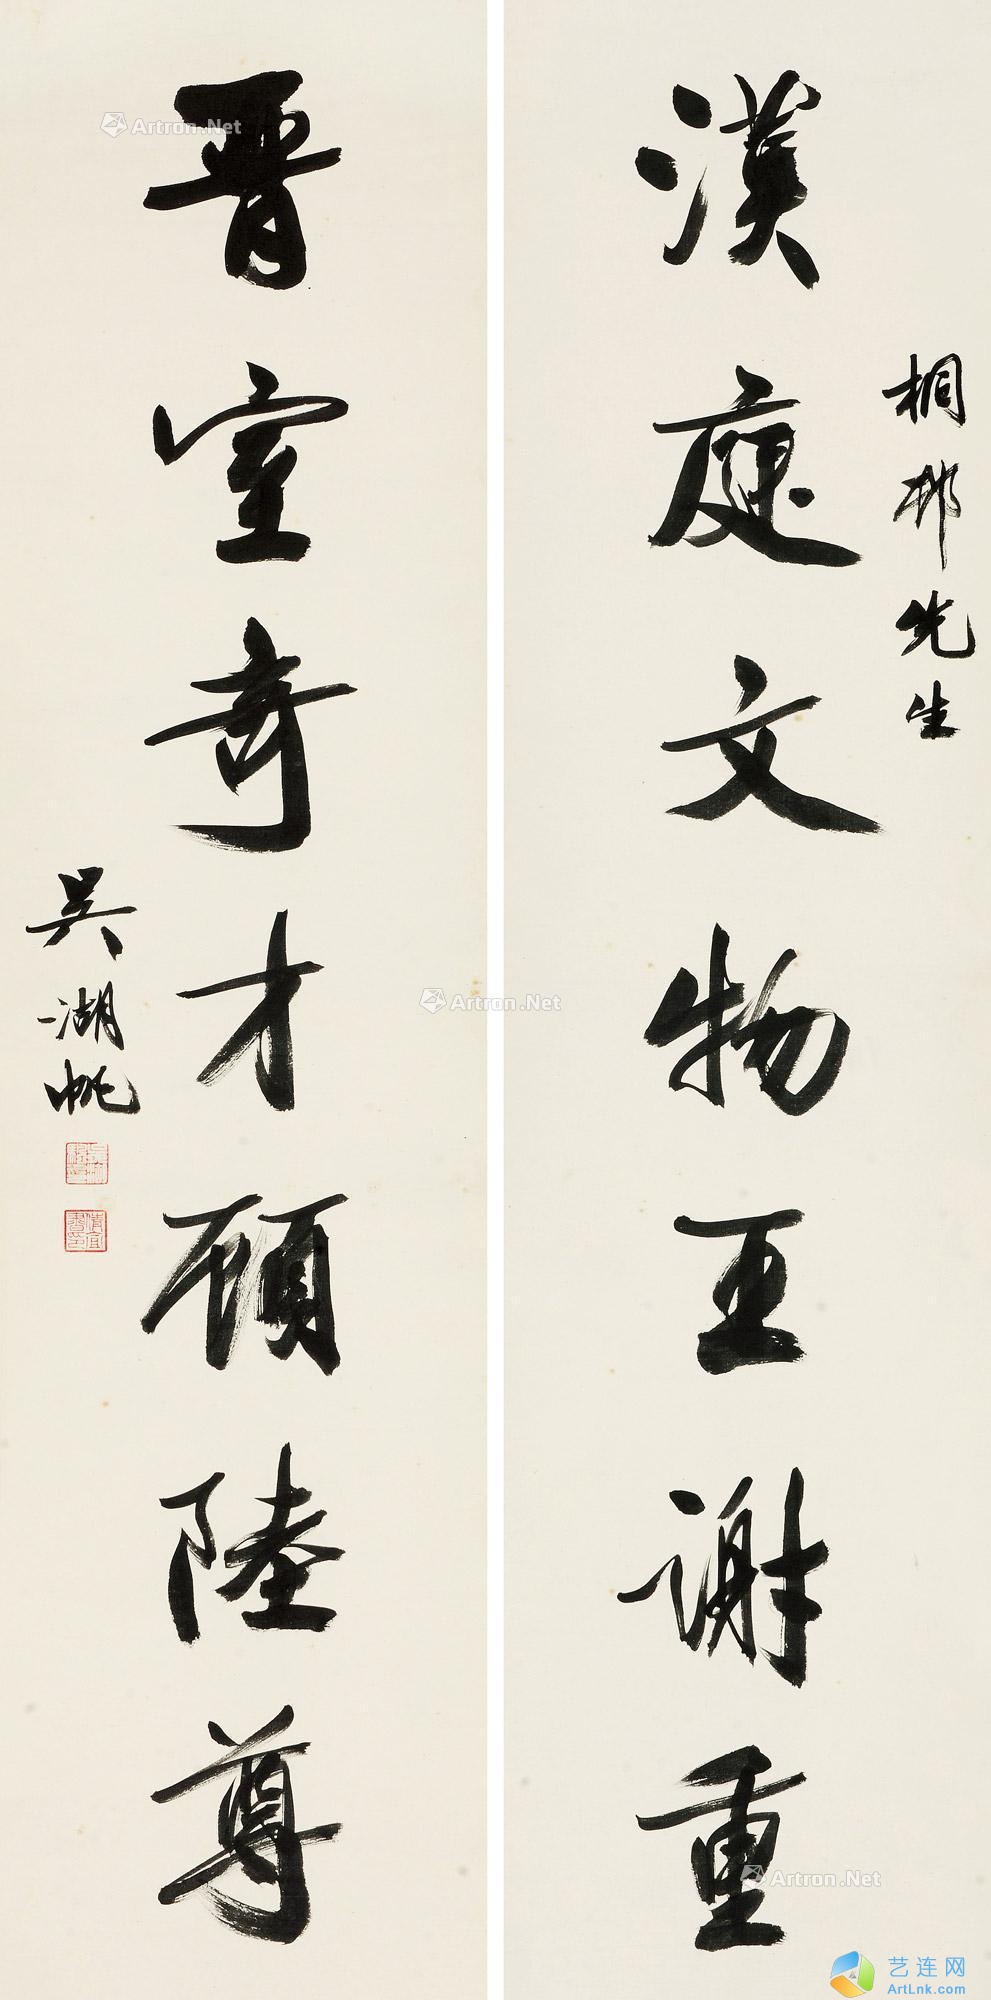 桐邨先生
漢庭文物王謝重
晉室奇才顧陸尊
吳湖帆
倩宜書印
Artron.Net
Artron.Net
Artron.Net
艺连网
ArtLnk.com